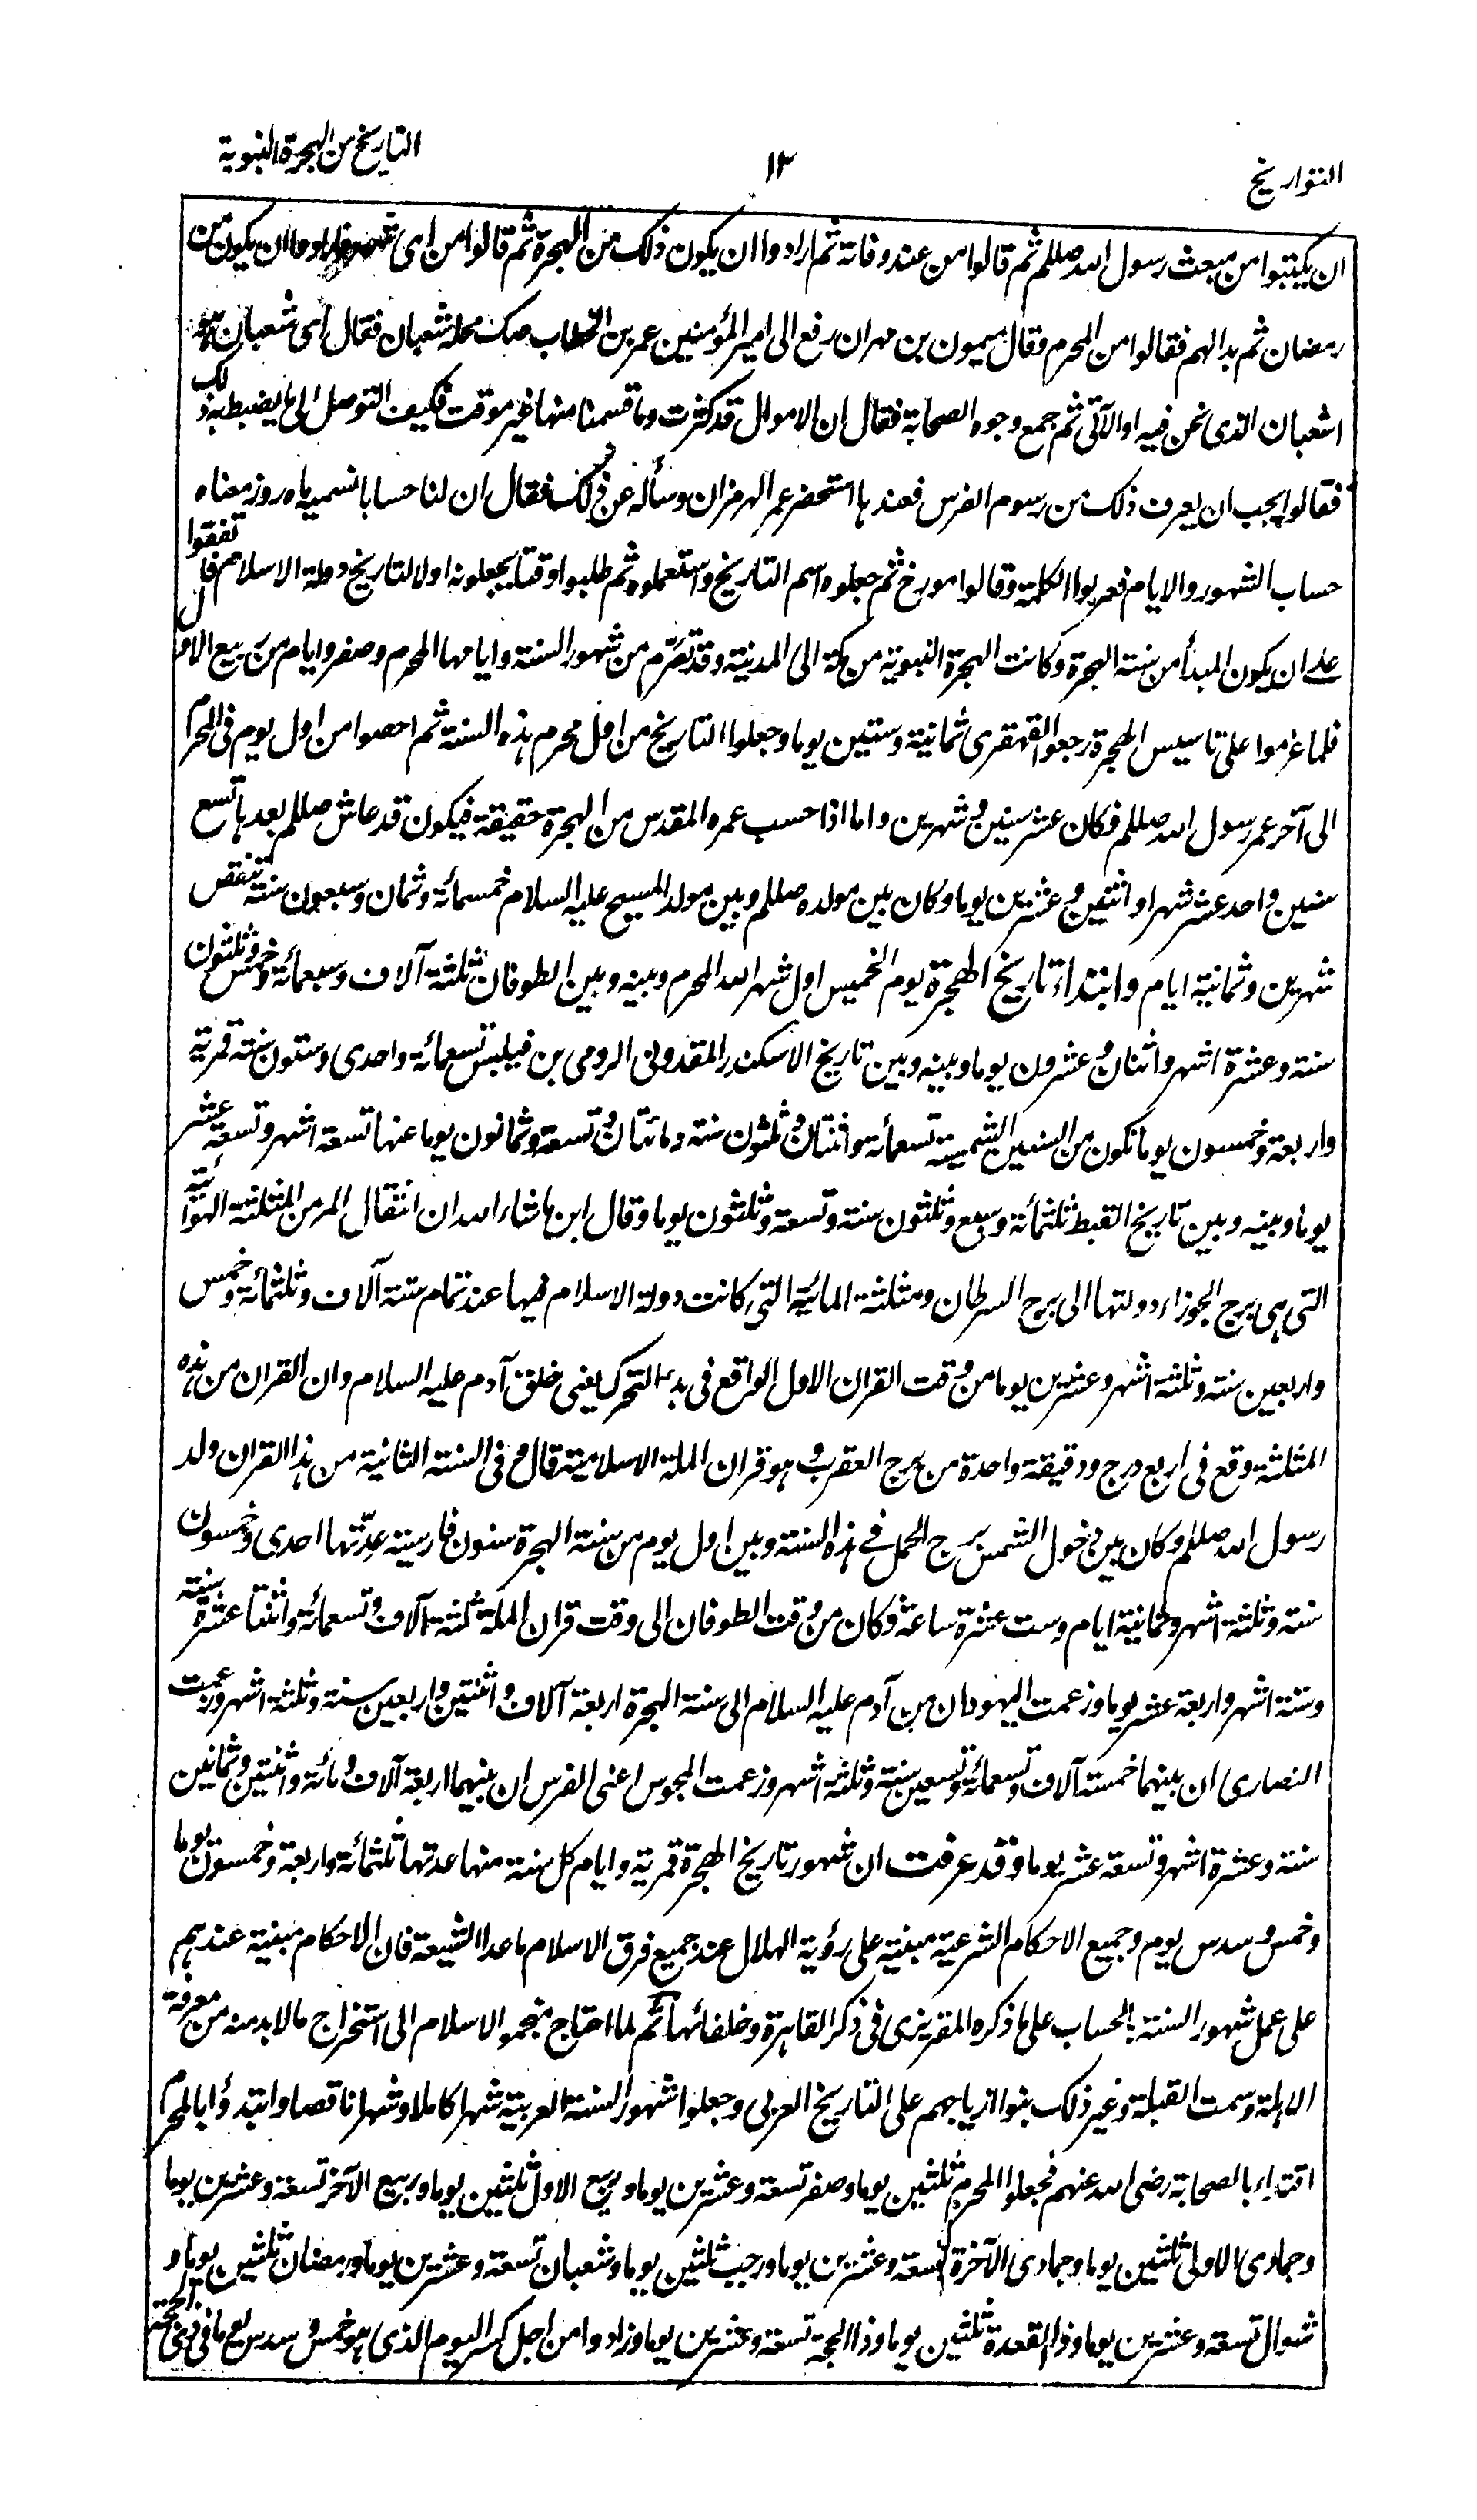 التواريخ ١٢ التاريخ من الهجرة النبوية
ان يكتبوا من مبعث رسول الله صللم ثم قالوا من عند وفاته ثم ارادوا ان يكون ذلك من الهجرة ثم قالوا من اى شهر فارادوا ان يكون من
رمضان ثم بدا لهم فقالوا من المحرم وقال ميمون بن مهران رفع الى امير المؤمنين عمر بن الخطاب صك محله شعبان فقال اى شعبان هو
اشعبان الذى نحن فيه او الآتى ثم جمع وجوه الصحابة فقال ان الاموال قد كثرت وما قسمنا منها غير موقت فكيف التوصل الى ما يضبط به ذلك
فقالوا يجب ان يعرف ذلك من رسوم الفرس فعندها استحضر عمر الهرمزان وسأله عن ذلك فقال ان لنا حسابا نسميه ماه روز معناه
حساب الشهور والايام فعربوا الكلمة وقالوا مورخ ثم جعلوه اسم التاريخ واستعملوه ثم طلبوا وقتا يجعلونه اولا لتاريخ دولة الاسلام فاتفقوا
على ان يكون المبدأ من سنة الهجرة وكانت الهجرة النبوية من مكة الى المدينة وقد تصرّم من شهور السنة وايامها المحرم وصفر وايام من ربيع الاول
فلما عزموا على تاسيس الهجرة رجعوا القهقرى ثمانية وستين يوما وجعلوا التاريخ من اول محرم هذه السنة ثم احصوا من اول يوم فى المحرم
الى آخر عمر رسول الله صللم فكان عشر سنين و شهرين واما اذا حسب عمره المقدس من الهجرة حقيقة فيكون قد عاش صللم بعدها تسع
سنين واحد عشر شهرا و اثنين و عشرين يوما وكان بين مولده صللم وبين مولد المسيح عليه السلام خمسمائة وثمان وسبعون سنة تنقص
شهرين وثمانية ايام وابتداء تاريخ الهجرة يوم الخميس اول شهر الله المحرم وبينه وبين الطوفان ثلثة آلاف وسبعمائة وخمس وثلثون
سنة وعشرة اشهر واثنان و عشرون يوما وبينه وبين تاريخ الاسكندر المقدونى الرومى بن فيلبس تسعمائة واحدى وستون سنة قمرية
واربعة وخمسون يوما تكون من السنين الشمسية تسعمائة واثنتان و ثلثون سنة ومائتان و تسعة وثمانون يوما عنها تسعة اشهر وتسعة عشر
يوما وبينه وبين تاريخ القبط ثلثمائة وسبع وثلثون سنة وتسعة وثلثون يوما وقال ابن ماشاء الله ان انتقال الممر من المثلثة الهوائية
التى هى برج الجوزاء ودولتها الى برج السرطان ومثلثة المائية التى كانت دولة الاسلام فيها عند تمام ستة آلاف وثلثمائة وخمس
واربعين سنة وثلثة اشهر وعشرين يوما من وقت القران الاول الواقع فى بدء التحرك يعنى خلق آدم عليه السلام وان القران من هذه
المثلثة وقع فى اربع درج ودقيقة واحدة من برج العقرب و هو قران الملة الاسلامية قال و فى السنة الثانية من هذا القران ولد
رسول الله صللم وكان بين دخول الشمس برج الحمل فى هذه السنة وبين اول يوم من سنة الهجرة سنون فارسية عدّتها احدى وخمسون
سنة وثلثة اشهر وثمانية ايام وست عشرة ساعة وكان من وقت الطوفان الى وقت قران الملة ثلثة آلاف وتسعمائة واثنتا عشرة سنة
وستة اشهر واربعة عشر يوما وزعمت اليهود ان من آدم عليه السلام الى سنة الهجرة اربعة آلاف و اثنتين واربعين سنة وثلثة اشهر وزعمت
النصارى ان بينهما خمسة آلاف وتسعمائة وتسعين سنة وثلثة اشهر وزعمت المجوس اعنى الفرس ان بينهما اربعة آلاف ومائة واثنتين وثمانين
سنة وعشرة اشهر وتسعة عشر يوما وقد عرفت ان شهور تاريخ الهجرة قمرية وايام كل سنة منها عدتها ثلثمائة واربعة وخمسون يوما
وخمس و سدس يوم وجميع الاحكام الشرعية مبنية على رؤية الهلال عند جميع فرق الاسلام ما عدا الشيعة فان الاحكام مبنية عندهم
على عمل شهور السنة بالحساب على ما ذكره المقريزى فى ذكر القاهرة وخلفائها ثم لما احتاج منجمو الاسلام الى استخراج ما لا بد منه من معرفة
الاهلة وسمت القبلة وغير ذلك بنوا ازياجهم على التاريخ العربى وجعلوا شهور السنة العربية شهرا كاملا وشهرا ناقصا وابتدؤا بالمحرم
اقتداء بالصحابة رضى الله عنهم فجعلوا المحرم ثلثين يوما وصفر تسعة وعشرين يوما وربيع الاول ثلثين يوما وربيع الآخر تسعة وعشرين يوما
وجمادى الاولى ثلثين يوما وجمادى الآخرة تسعة وعشرين يوما ورجب ثلثين يوما وشعبان تسعة وعشرين يوما ورمضان ثلثين يوما و
شوال تسعة وعشرين يوما وذا القعدة ثلثين يوما وذا الحجة تسعة وعشرين يوما وزادوا من اجل كسر اليوم الذى هو خمس و سدس يوما فى ذى الحجة